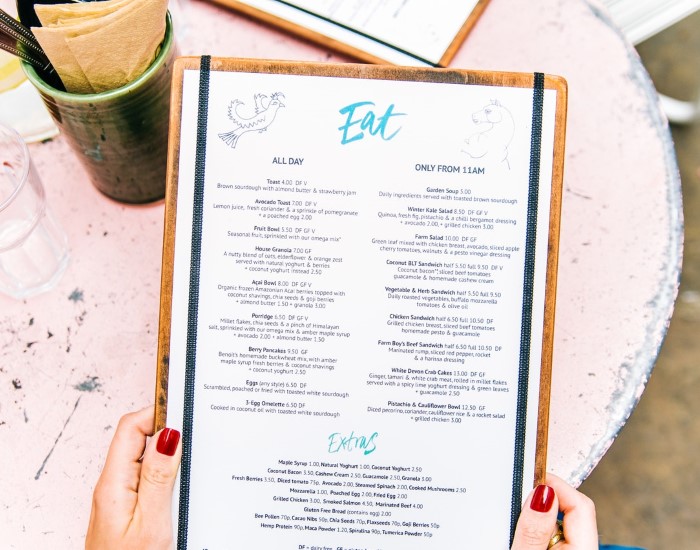 Eat
ALL DAY
Toast 4.00 DF V
Brown sourdough with almond butter & strawberry jam
Avocado Toast 7.00 DF V
Lemon juice, fresh coriander & a sprinkle of pomegranate
+ a poached egg 2.00
Fruit Bowl 5.50 DF GF V
Seasonal fruit, sprinkled with our omega mix*
House Granola 7.00 GF
A nutty blend of oats, elderflower & orange zest
served with natural yoghurt & berries
+ coconut yoghurt instead 2.50
Açaí Bowl 8.00 DF GF V
Organic frozen Amazonian Açaí berries topped with
coconut shavings, chia seeds & goji berries
+ almond butter 1.50 + granola 3.00
Porridge 6.50 DF GF V
Millet flakes, chia seeds & a pinch of Himalayan
salt, sprinkled with our omega mix & amber maple syrup
+ avocado 2.00 + almond butter 1.50
Berry Pancakes 9.50 GF
homemade buckwheat mix, with amber
maple syrup fresh berries & coconut shavings
+ coconut yoghurt 2.50
Eggs (any style) 6.50 DF
Scrambled, poached or fried with toasted white sourdough
3-Egg Omelette 6.50 DF
Cooked in coconut oil with toasted white sourdough
ONLY FROM 11AM
Garden Soup 5.00
Daily ingredients served with toasted brown sourdough
Winter Kale Salad 8.50 DF GF V
Quinoa, fresh fig, pistachio & a chilli bergamot dressing
+ avocado 2.00, + grilled chicken 3.00
Farm Salad 10.00 DF GF
Green leaf mixed with chicken breast, avocado, sliced apple
cherry tomatoes, walnuts & a pesto vinegar dressing
Coconut BLT Sandwich half 5.50 full 9.50 DF V
Coconut bacon, sliced beef tomatoes
guacamole & homemade cashew cream
Vegetable & Herb Sandwich half 5.50 full 9.50
Daily roasted vegetables, buffalo mozzarella
tomatoes & olive oil
Chicken Sandwich half 6.50 full 10.50 DF
Grilled chicken breast, sliced beef tomatoes
homemade pesto & guacamole
Farm Boy's Beef Sandwich half 6.50 full 10.50 DF
Marinated rump, sliced red pepper, rocket
& a harissa dressing
White Devon Crab Cakes 13.00 DF GF
Ginger, tamari & white crab meat, rolled in millet flakes
served with a spicy lime yoghurt dressing & green leaves
+ guacamole 2.50
Pistachio & Cauliflower Bowl 12.50 GF
Diced pecorino, coriander, cauliflower rice & a rocket salad
+ grilled chicken 3.00
Extras
Maple Syrup 1.00, Natural Yoghurt 1.00, Coconut Yoghurt 2.50
Coconut Bacon 3.50, Cashew Cream 2.50, Guacamole 2.50, Granola 3.00
Fresh Berries 3.50, Diced tomato 75p, Avocado 2.00, Steamed Spinach 2.00, Cooked Mushrooms 2.50
Mozzarella 1.00, Poached Egg 2.00, Fried Egg 2.00
Grilled Chicken 3.00, Smoked Salmon 4.50, Marinated Beef 4.00
Gluten Free Bread (contains egg) 2.00
Bee Pollen 70p, Cacao Nibs 50p, Chia Seeds 70p, Flaxseeds 70p, Goji Berries 50p
Hemp Protein 90p, Maca Powder 1.20, Spirulina 90p, Tumerica Powder 50p
DF = dairy free